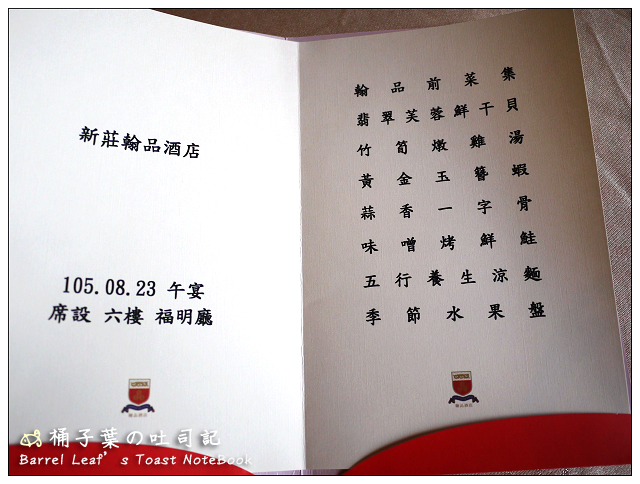 新莊翰品酒店
105.08.23 午宴
席設 六樓 福明廳
翰品前菜集
翡翠芙蓉鮮干貝
竹筍燉雞湯
黃金玉簪蝦
蒜香一字骨
味噌烤鮮鮭
五行養生涼麵
季節水果盤
桶子葉の吐司記
Barrel Leaf's Toast NoteBook